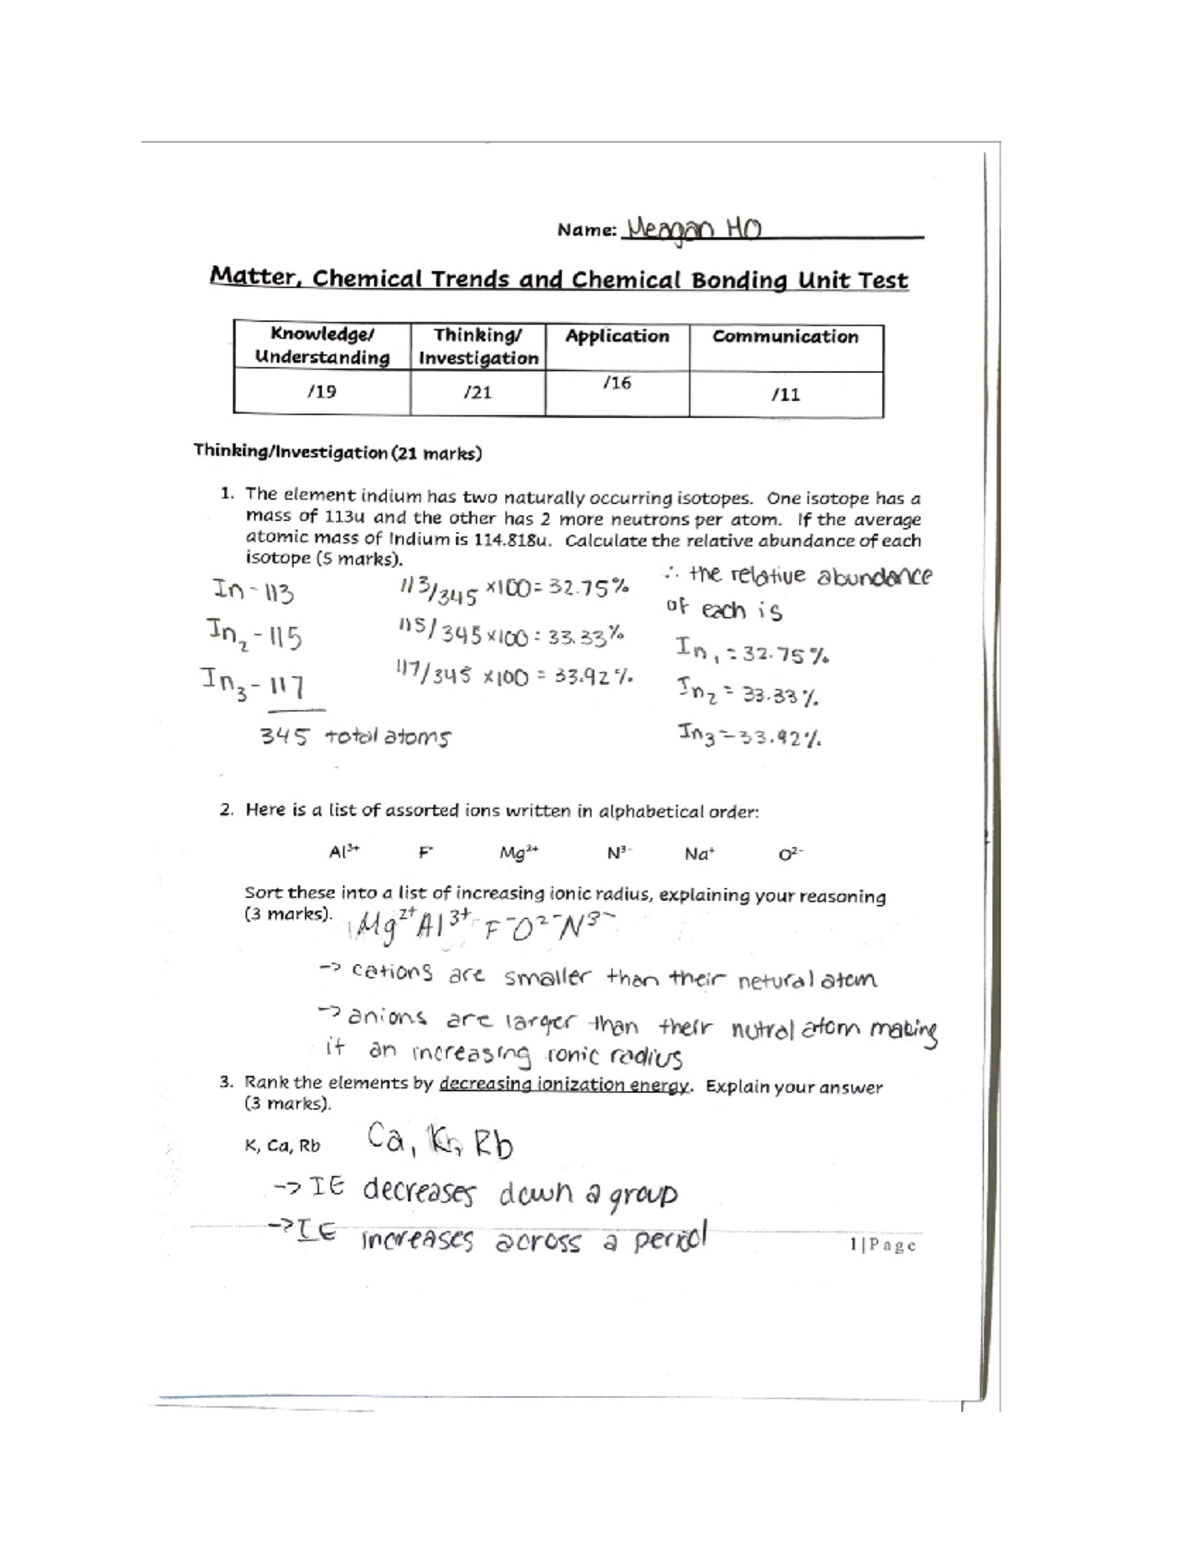 Name: Meagan HO
Matter, Chemical Trends and Chemical Bonding Unit Test
Knowledge/ Understanding Thinking/ Investigation Application Communication
/19 /21 /16 /11
Thinking/Investigation (21 marks)
1. The element indium has two naturally occurring isotopes. One isotope has a
mass of 113u and the other has 2 more neutrons per atom. If the average
atomic mass of Indium is 114.818u. Calculate the relative abundance of each
isotope (5 marks).
In - 113 113/345 ×100 = 32.75% ∴ the relative abundance
of each is
In₂ - 115 115/345 ×100 = 33.33% In₁ = 32.75%
In₃ - 117 117/345 ×100 = 33.92% In₂ = 33.33%
345 total atoms In₃ = 33.92%
2. Here is a list of assorted ions written in alphabetical order:
Al³⁺ F⁻ Mg²⁺ N³⁻ Na⁺ O²⁻
Sort these into a list of increasing ionic radius, explaining your reasoning
(3 marks). Mg²⁺ Al³⁺ F⁻ O²⁻ N³⁻
-> cations are smaller than their netural atom
-> anions are larger than their nutral atom making
it an increasing ionic radius
3. Rank the elements by decreasing ionization energy. Explain your answer
(3 marks).
K, Ca, Rb Ca, K, Rb
-> IE decreases down a group
-> IE increases across a period
1|Page